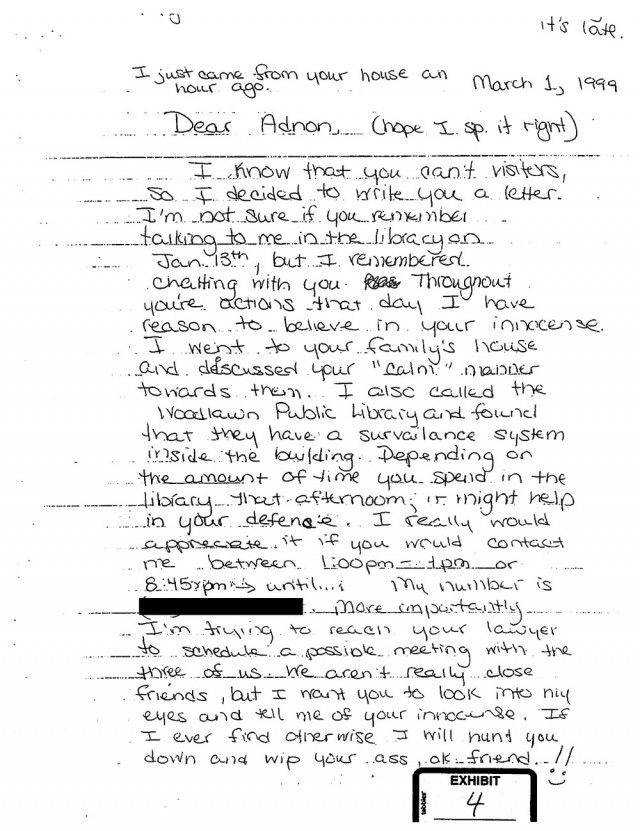 it's late.
I just came from your house an
hour ago.
March 1, 1999
Dear Adnon, (hope I sp. it right)
I know that you can't visitors,
so I decided to write you a letter.
I'm not sure if you remember
talking to me in the library on
Jan 13th, but I remembered
chatting with you. Throughout
you're actions that day I have
reason to believe in your innocense.
I went to your family's house
and discussed your "calm" manner
towards them. I also called the
Woodlawn Public Library and found
that they have a survailance system
inside the building. Depending on
the amount of time you spend in the
library that afternoon, it might help
in your defence. I really would
appreciate it if you would contact
me between 1:00pm - 4pm or
8:45pm → until...: My number is
. More importantly
I'm trying to reach your lawyer
to schedule a possible meeting with the
three of us. We aren't really close
friends, but I want you to look into my
eyes and tell me of your innocense. If
I ever find otherwise I will hunt you
down and wip your ass, ok friend. !!
EXHIBIT
4